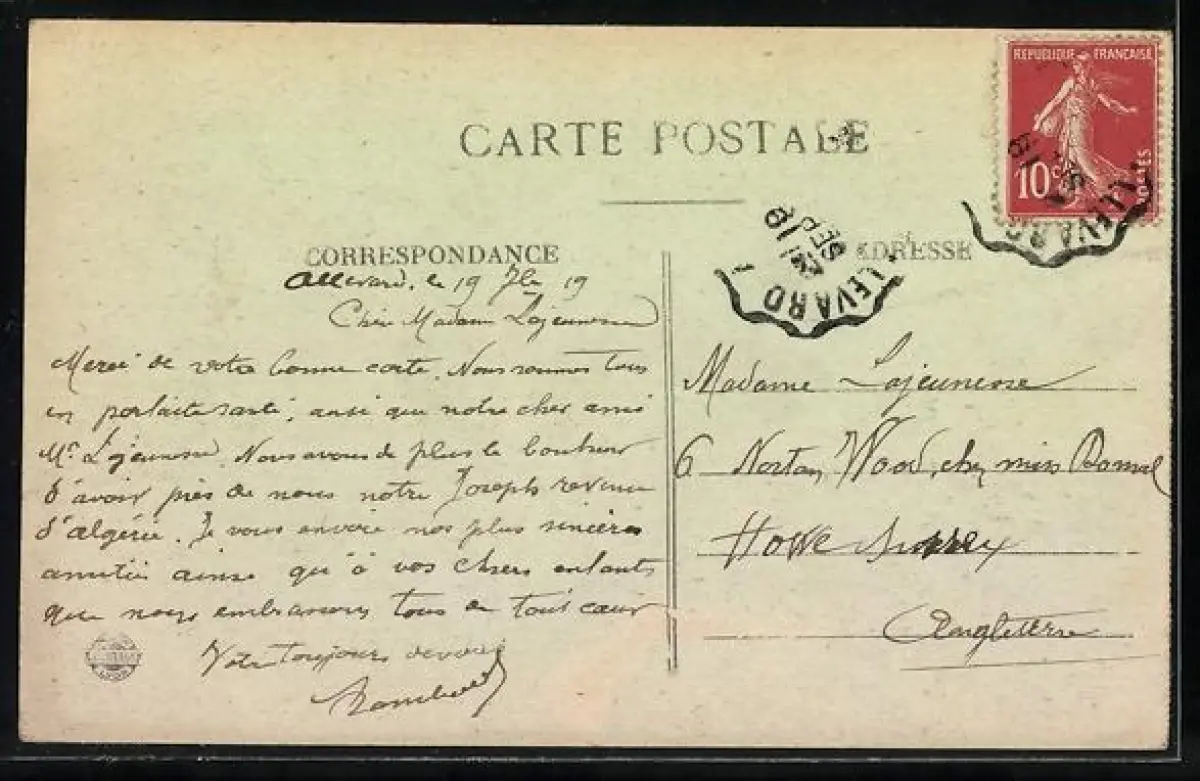 CARTE POSTALE
REPUBLIQUE FRANÇAISE
10c POSTES
CORRESPONDANCE
ADRESSE
LEVARD
SEP
19
Allevard, le 19 7bre 19
Chère Madame Lajeunesse
Merci de votre bonne carte. Nous sommes tous
en parfaite santé, ainsi que notre cher ami
Mr Lajeunesse. Nous avons de plus le bonheur
d'avoir près de nous notre Joseph revenu
d'algérie. Je vous envoie nos plus sincères
amitiés ainsi qu'à vos chers enfants
que nous embrassons tous de tout coeur
Votre toujours dévoué
Madame Lajeunesse
6 Norton Wood, chez miss
Hove Sussex
Angleterre